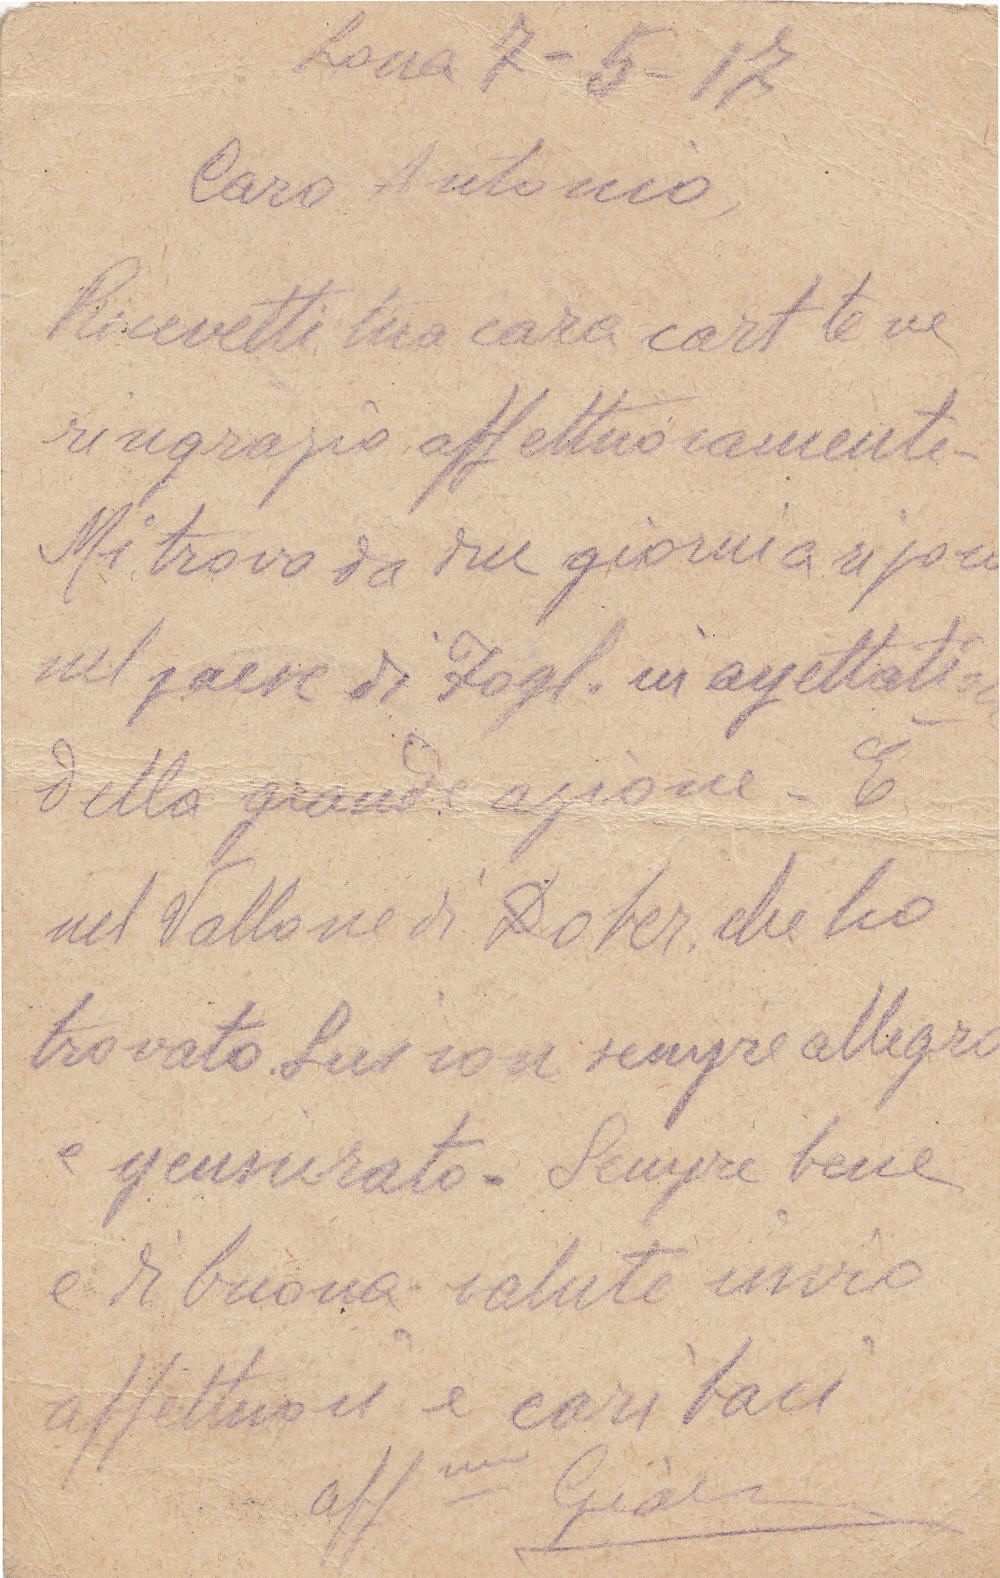 Zona 7-5-17
Caro Antonio,
Ricevetti tua cara cart te ne
ringrazio affettuosamente-
Mi trovo da due giorni a ripos
nel paese di Fogl. in aspettati
della grande azione - E
nel Vallone di Dober che ho
trovato sempre allegro
e spensierato - Sempre bene
e di buona salute invio
affettuosi e cari baci
aff mo